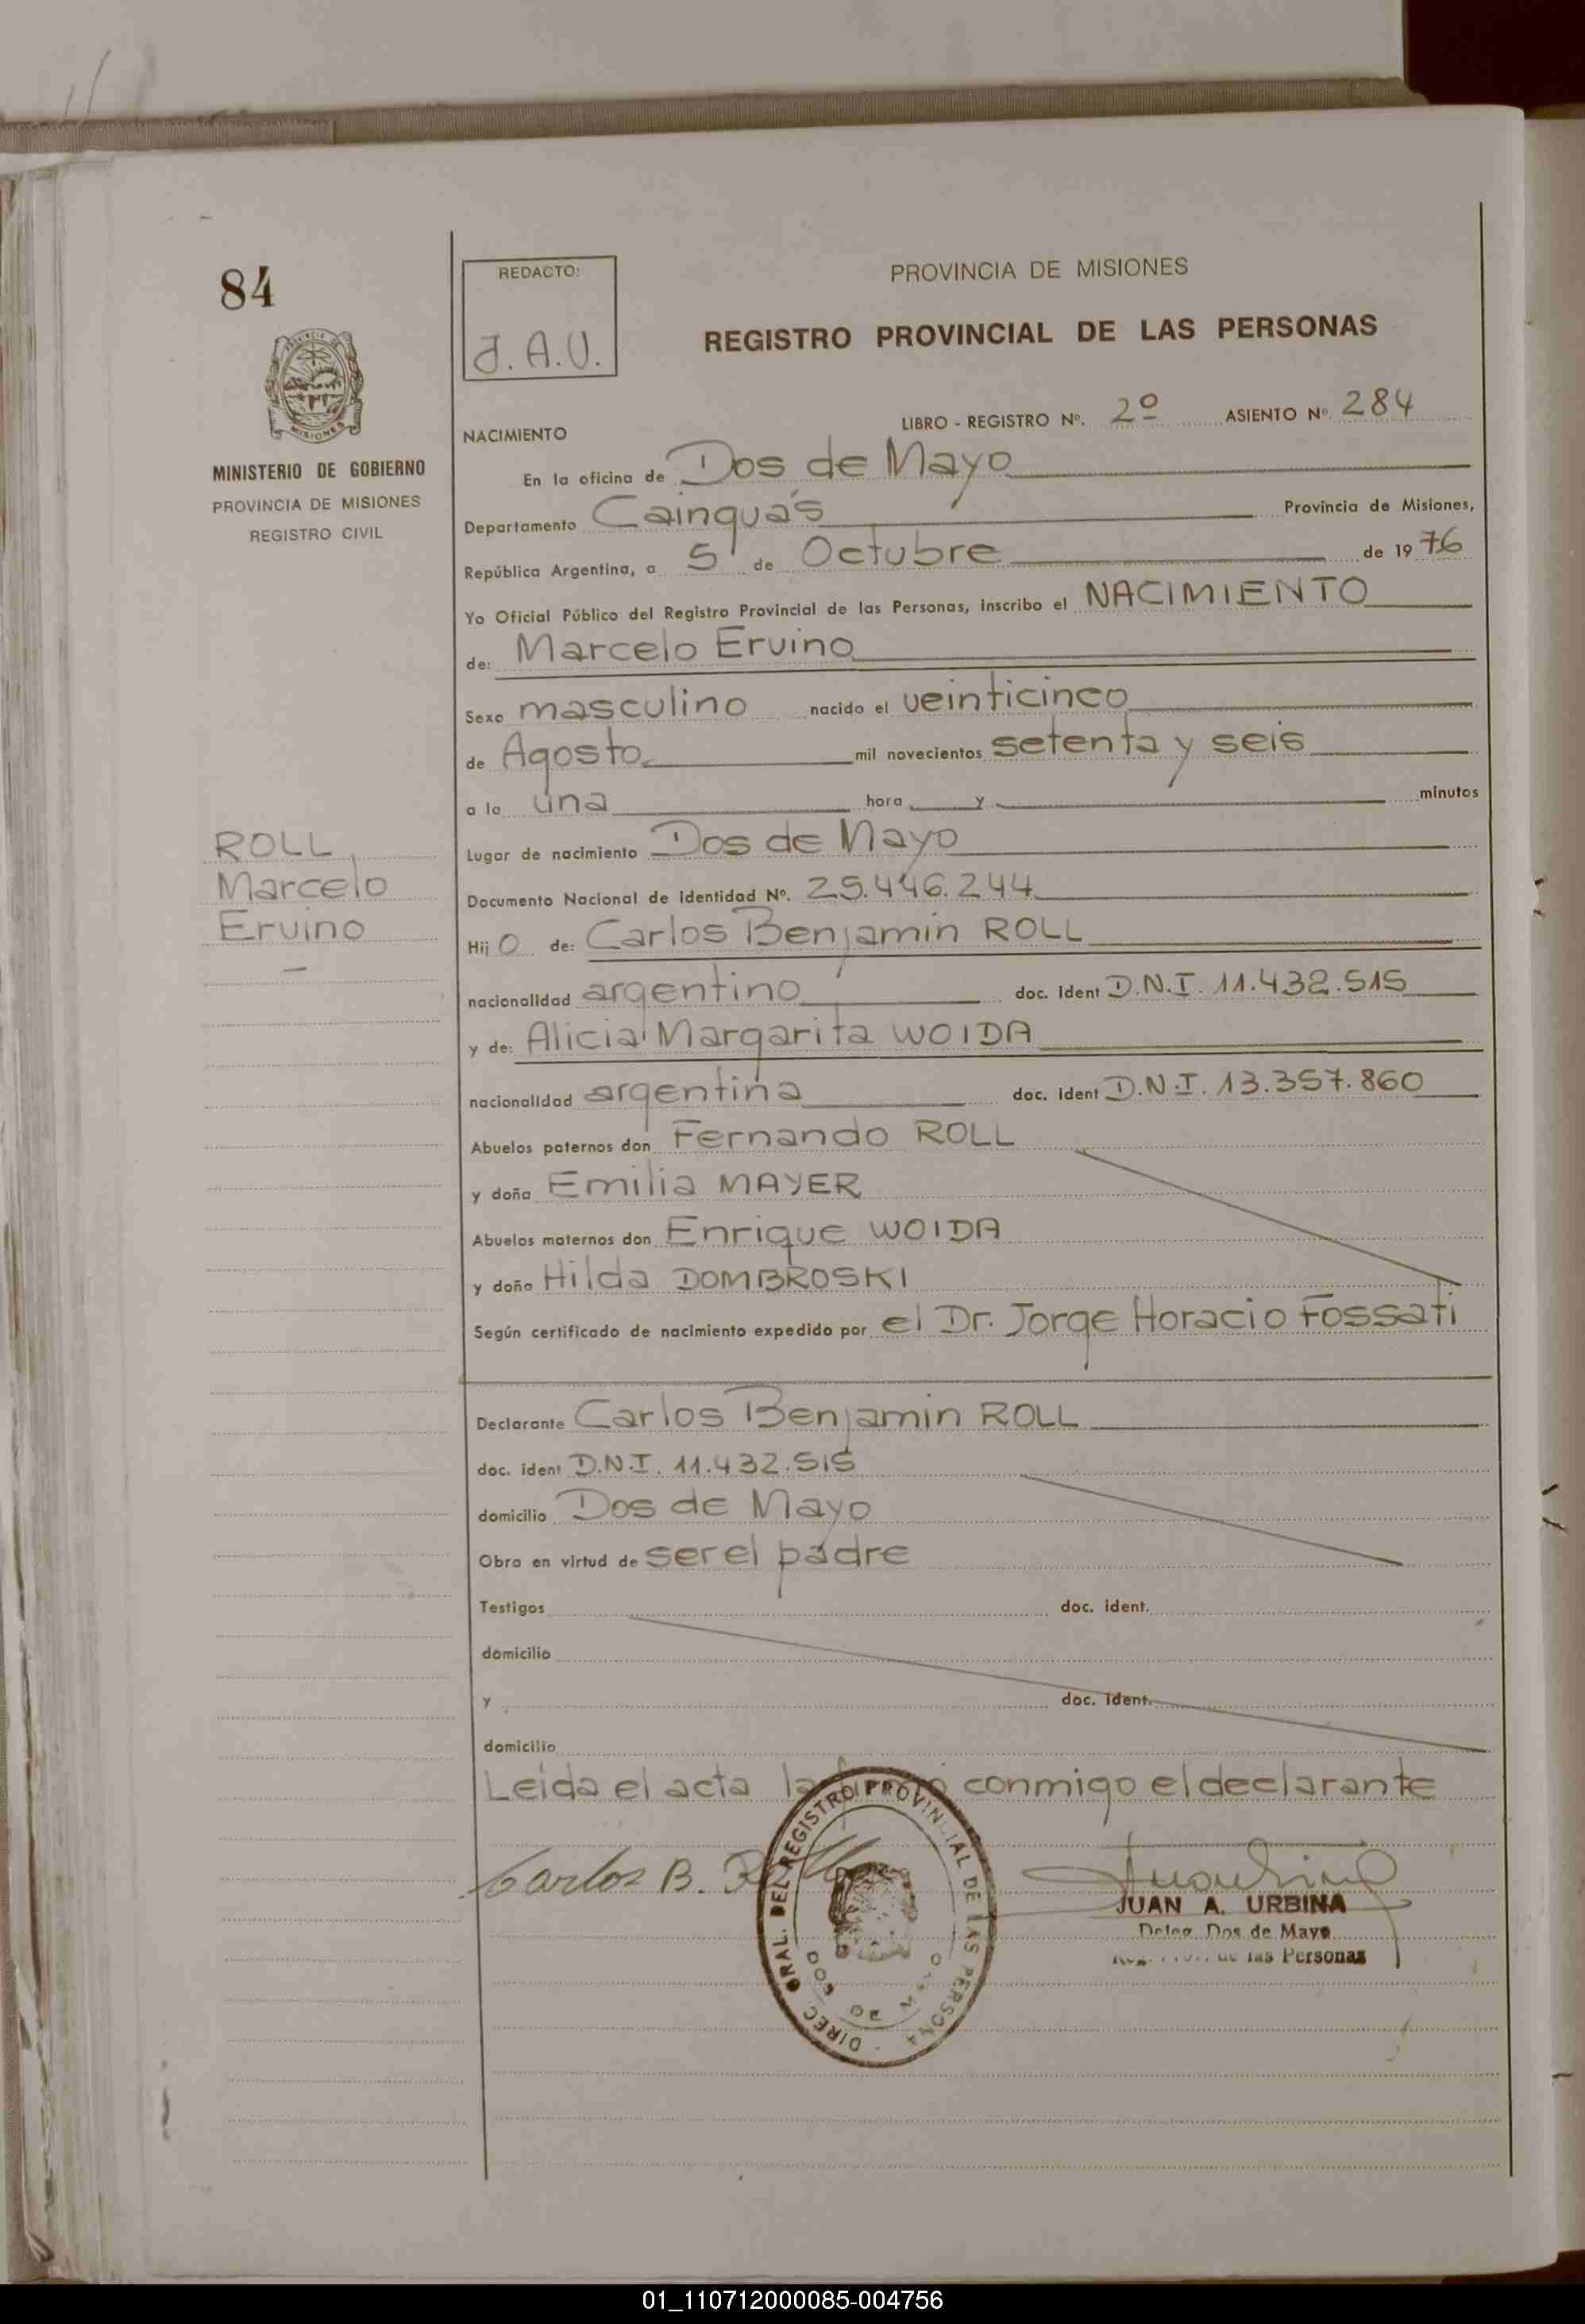 84
REDACTO:
J.A.U.
PROVINCIA DE MISIONES
REGISTRO PROVINCIAL DE LAS PERSONAS
PROVINCIA DE
MISIONES
MINISTERIO DE GOBIERNO
PROVINCIA DE MISIONES
REGISTRO CIVIL
LIBRO - REGISTRO Nº. 2º ASIENTO Nº. 284
NACIMIENTO
En la oficina de Dos de Mayo
Departamento Cainguás Provincia de Misiones,
República Argentina, a 5 de Octubre de 1976
Yo Oficial Público del Registro Provincial de las Personas, inscribo el NACIMIENTO
de: Marcelo Ervino
Sexo masculino nacido el veinticinco
de Agosto mil novecientos setenta y seis
a la una hora y minutos
ROLL,
Marcelo
Ervino
Lugar de nacimiento Dos de Mayo
Documento Nacional de Identidad Nº. 25.446.244
Hij o de: Carlos Benjamin ROLL
nacionalidad argentino doc. ident D.N.I. 11.432.515
y de: Alicia Margarita WOIDA
nacionalidad argentina doc. ident D.N.I. 13.357.860
Abuelos paternos don Fernando ROLL
y doña Emilia MAYER
Abuelos maternos don Enrique WOIDA
y doña Hilda DOMBROSKI
Según certificado de nacimiento expedido por el Dr. Jorge Horacio Fossati
Declarante Carlos Benjamin ROLL
doc. ident D.N.I. 11.432.515
domicilio Dos de Mayo
Obra en virtud de ser el padre
Testigos doc. ident.
domicilio
y doc. ident.
domicilio
Leida el acta la conmigo el declarante
Carlos B. Roll
DIREC. GRAL. DEL REGISTRO PROVINCIAL DE LAS PERSONAS
DOS DE MAYO
JUAN A. URBINA
Deleg. Dos de Mayo
de las Personas
01_110712000085-004756